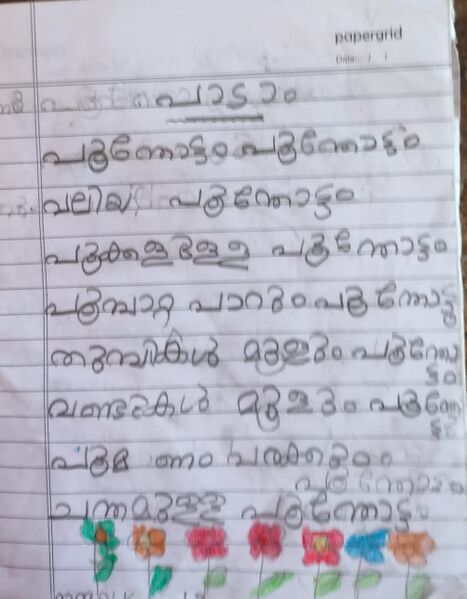 papergrid
Date: / /
പാടാം
പൂന്തോട്ടം പൂന്തോട്ടം
വലിയ പൂന്തോട്ടം
പൂക്കളുള്ള പൂന്തോട്ടം
പൂമ്പാറ്റ പാറും പൂന്തോട്ട
തുമ്പികൾ മൂളും പൂന്തോ
ട്ടം
വണ്ടുകൾ മൂളും പൂന്തോ
ട്ടം
പൂമണം പരക്കും
പൂന്തോട്ടം
ചന്തമുള്ള പൂന്തോട്ടം